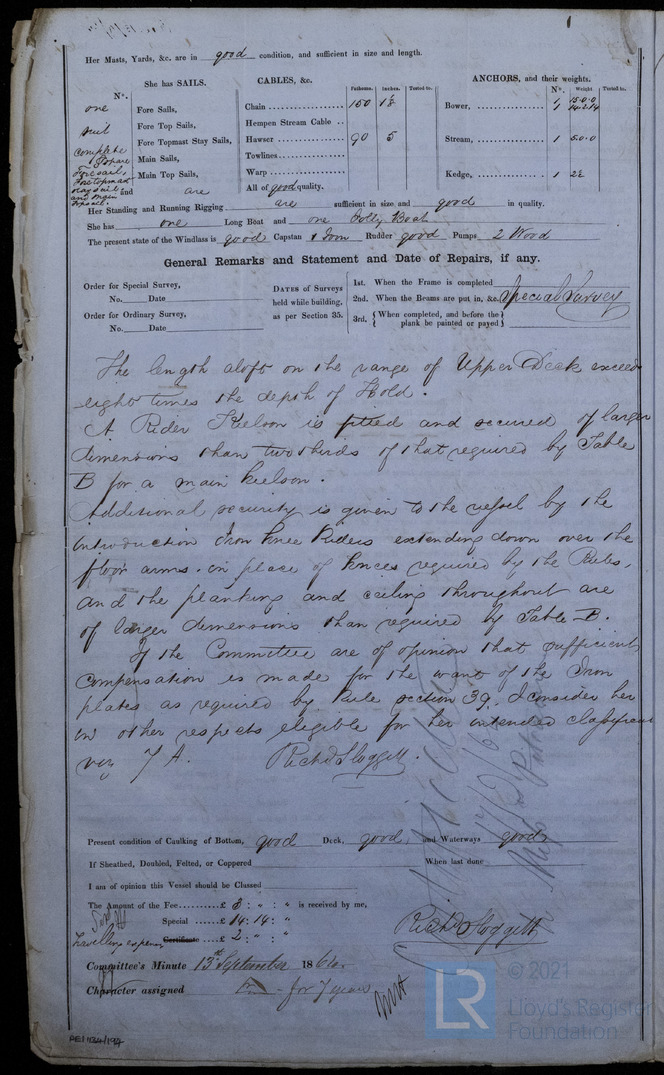 Her Masts, Yards, &c. are in good condition, and sufficient in size and length.
She has SAILS.
CABLES, &c.
Fathoms. Inches. Tested to.
ANCHORS, and their weights.
Nº. Weight Tested to.
Nº.
one Fore Sails,
suit Fore Top Sails,
complete Fore Topmast Stay Sails,
Spare Main Sails,
Foresail, Main Top Sails,
Foretopmast
staysail and are
and Main
Topsail.
Chain 150 1⅛
Hempen Stream Cable
Hawser 90 5
Towlines
Warp
All of good quality.
Bower, 1 15.0.0
1 14.2.14
Stream, 1 5.0.0
Kedge, 1
Her Standing and Running Rigging are sufficient in size and good in quality.
She has one Long Boat and one Jolly Boat
The present state of the Windlass is good Capstan 1 Iron Rudder good Pumps 2 Wood
General Remarks and Statement and Date of Repairs, if any.
Order for Special Survey,
No. Date
Order for Ordinary Survey,
No. Date
DATES of Surveys
held while building,
as per Section 35.
1st. When the Frame is completed
2nd. When the Beams are put in, &c. Special Survey
3rd. {When completed, and before the
plank be painted or payed}
The length aloft on the range of Upper Deck exceed
eight times the depth of Hold.
A Rider Kielson is fitted and secured of larger
dimensions than two thirds of that required by Table
B for a main kielson.
Additional security is given to the vessel by the
introduction Iron Knee Riders extending down over the
floor arms. in place of knees required by the Rules,
and the planking and ceiling throughout are
of larger dimensions than required by Table B.
If the Committee are of opinion that sufficient
compensation is made for the want of the Iron
plates as required by Rule section 39, I consider her
in other respects eligible for her intended classificati
viz 7 A. Richd Sloggett.
Present condition of Caulking of Bottom, good Deck, good, and Waterways good
If Sheathed, Doubled, Felted, or Coppered When last done
I am of opinion this Vessel should be Classed
The Amount of the Fee £ 3 : " : " is received by me,
Special £ 14 : 14 : "
Travelling expenses Certificate £ 2 : " : "
Richd Sloggett
Committee's Minute 13th September 186
Character assigned for 7 years
PEI/134/194
LR
© 2021
Lloyd's Register
Foundation